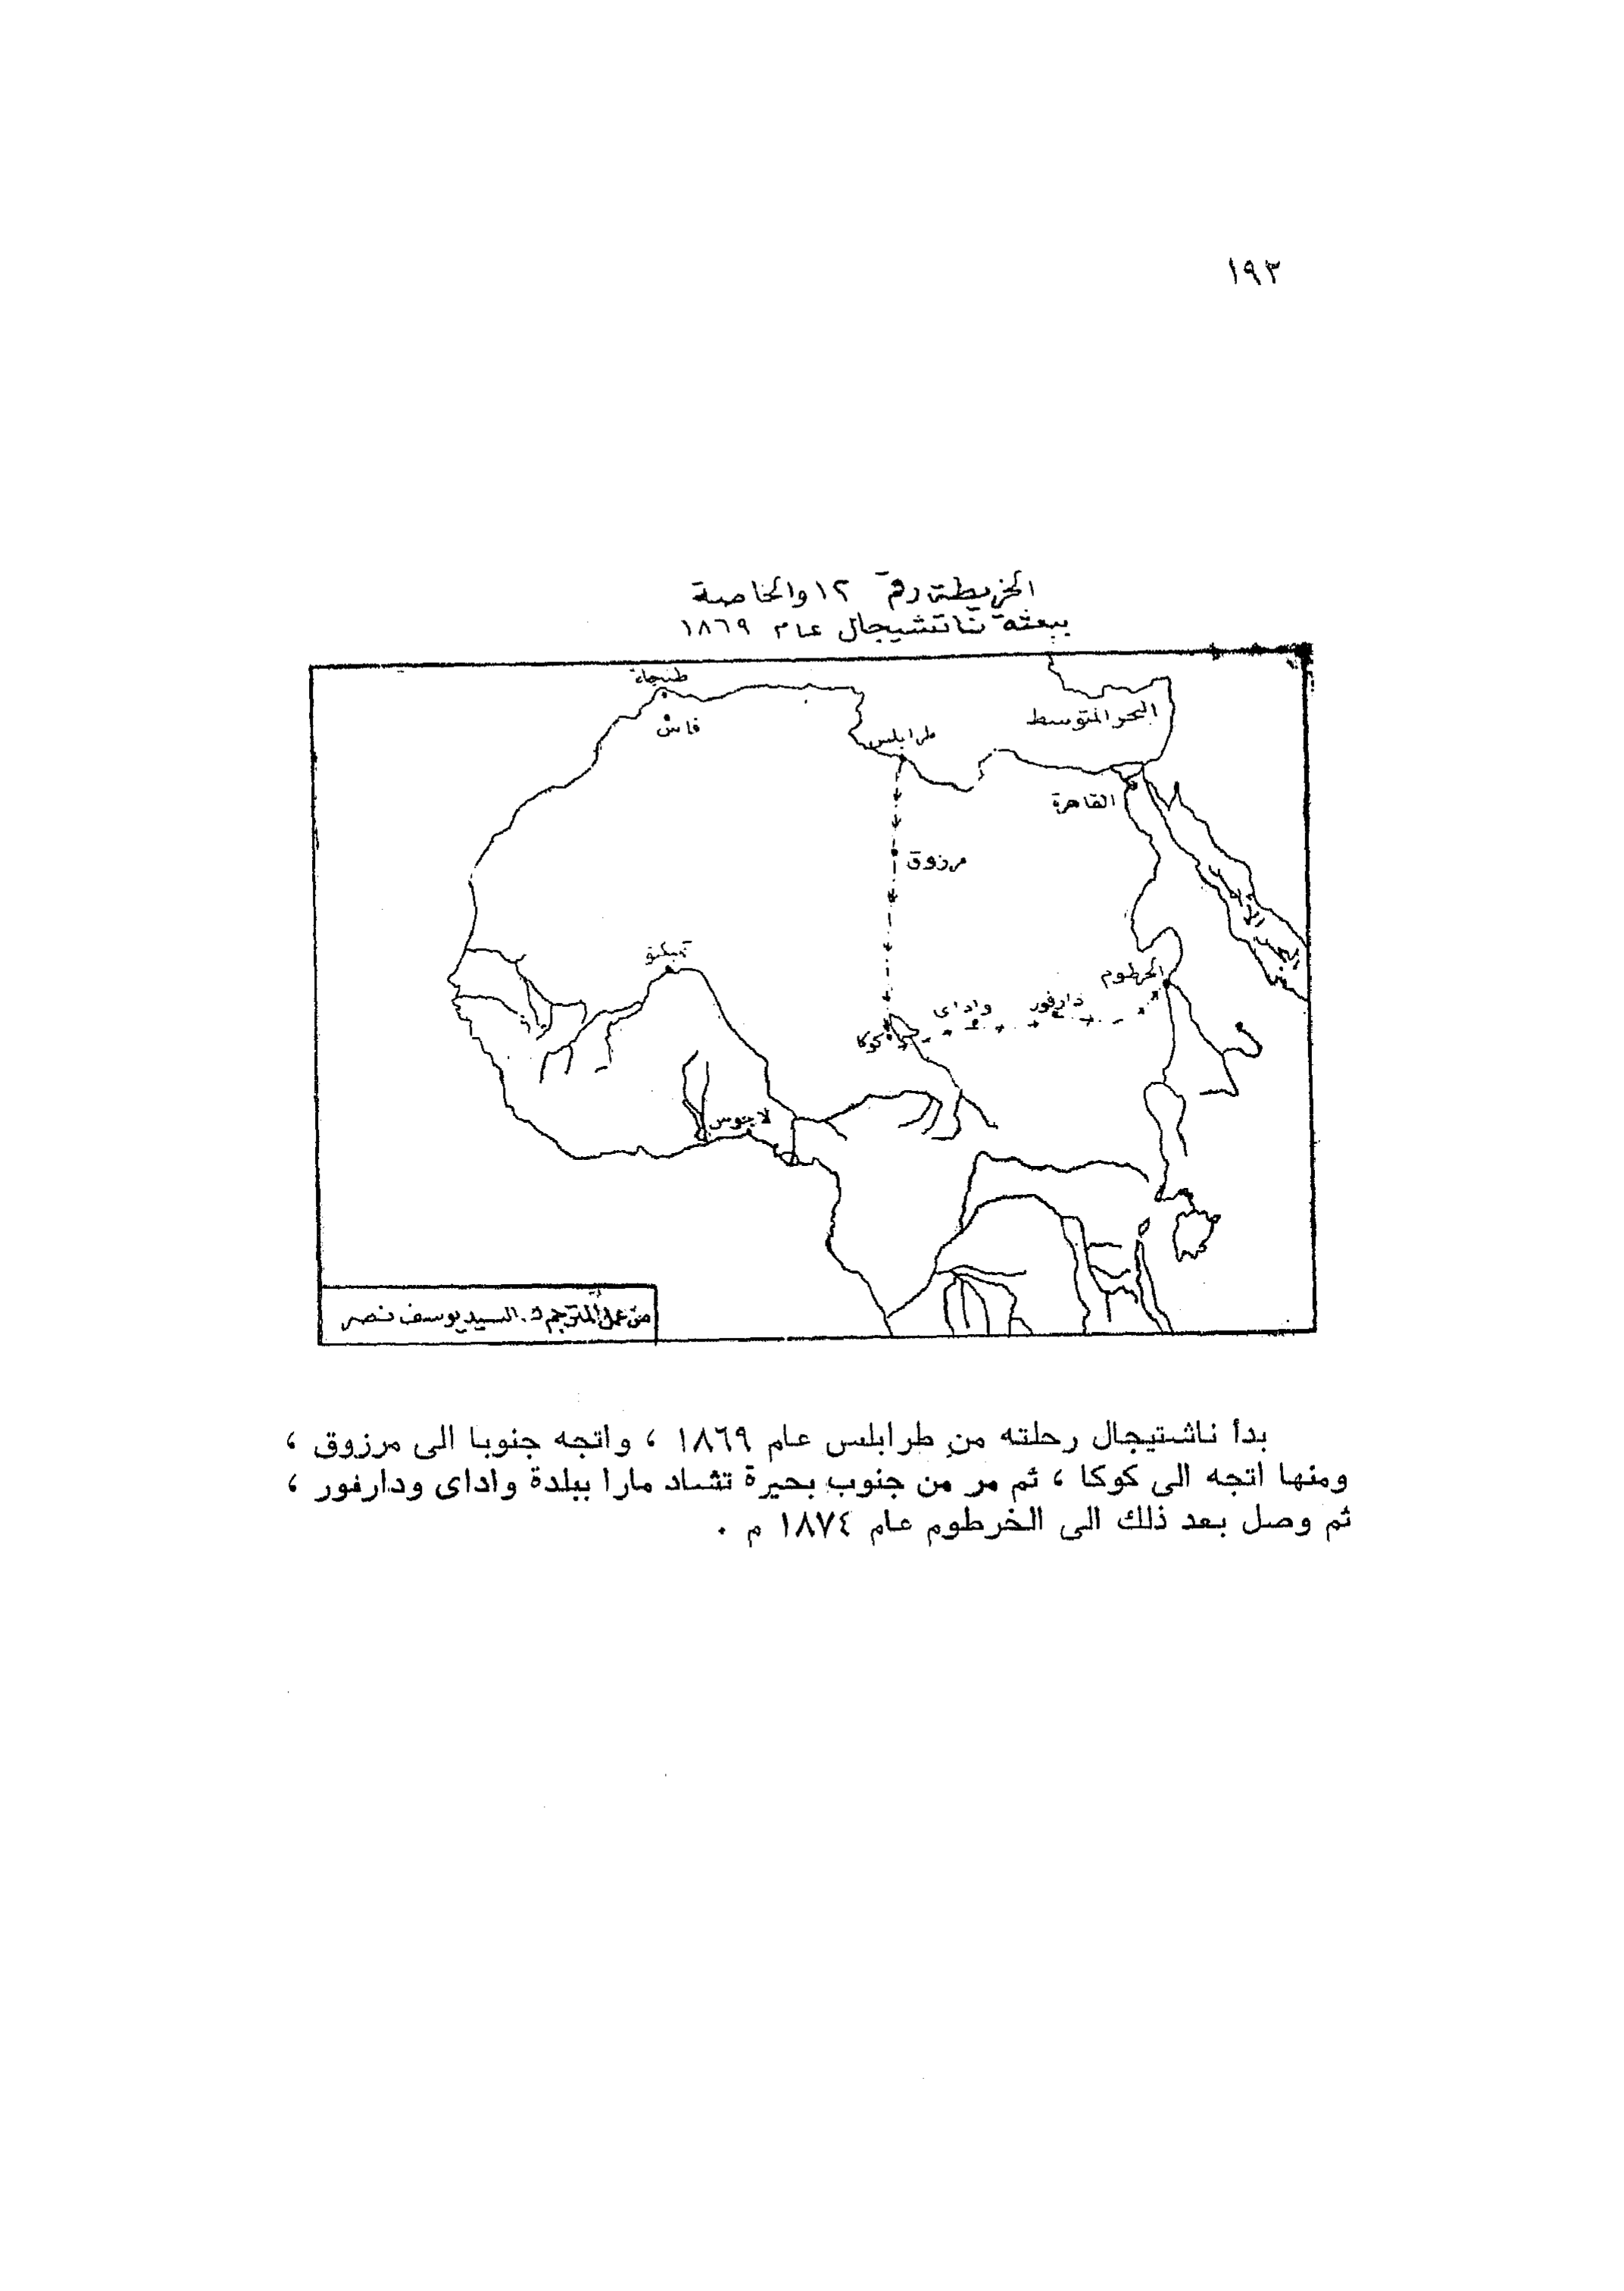 ١٩٣
الخريطة رقم ١٢ والخاصة
ببعثة ناتشيجال عام ١٨٦٩
طنجاة
فاس
طرابلس
البحر المتوسط
القاهرة
مرزوق
البحر الأحمر
تمبكتو
الخرطوم
دارفور
واداى
كوكا
لاجوس
من عمل المترجم د. السيد يوسف نصر
بدأ ناشتيجال رحلته من طرابلس عام ١٨٦٩ ، واتجه جنوبا الى مرزوق ،
ومنها اتجه الى كوكا ، ثم مر من جنوب بحيرة تشاد مارا ببلدة واداى ودارفور ،
ثم وصل بعد ذلك الى الخرطوم عام ١٨٧٤ م .